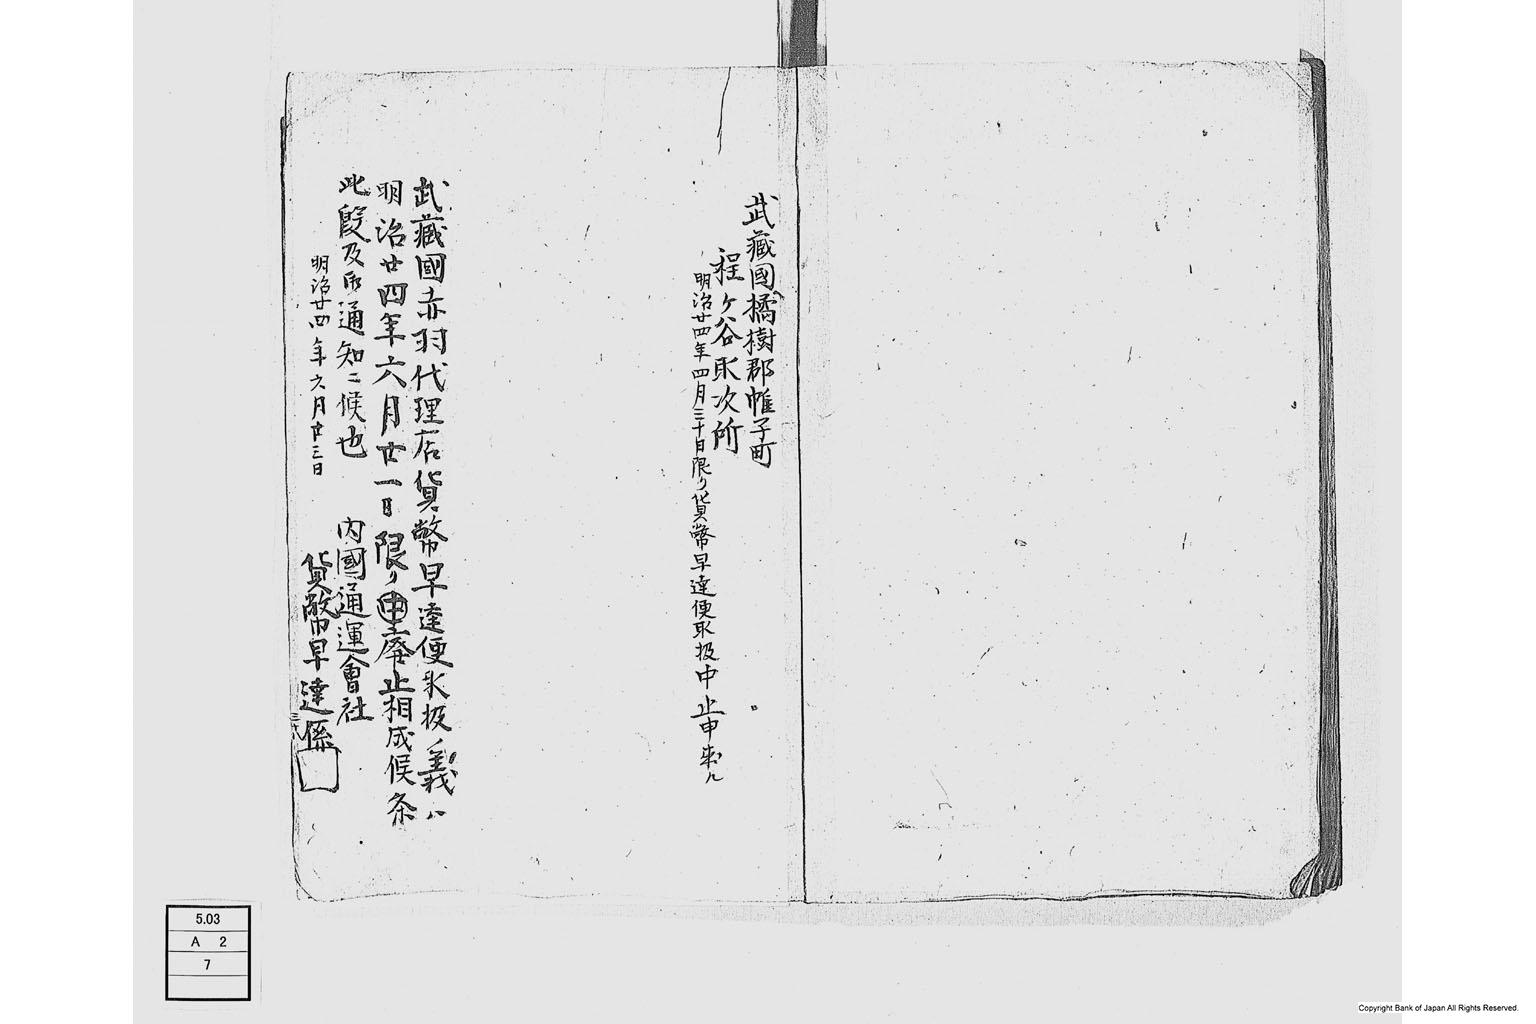 武藏國橘樹郡帷子町
程ヶ谷取次所
明治廿四年四月三十日限リ貨幣早達便取扱中止申来ル
武藏國赤羽代理店貨幣早達便取扱ノ義ハ
明治廿四年六月廿一日限リ廃止相成候条
此段及御通知ニ候也
明治廿四年六月廿三日
内國通運會社
貨幣早達係
5.03
A 2
7
Copyright Bank of Japan All Rights Reserved.